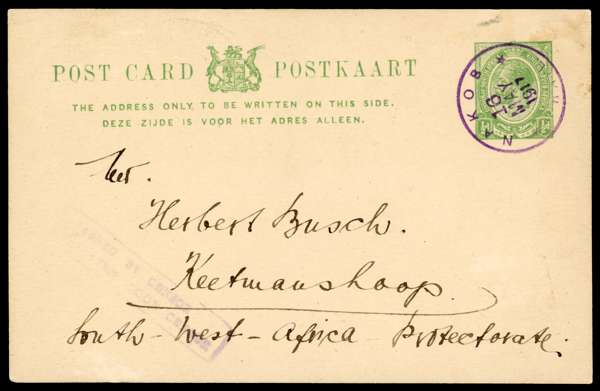 POST CARD POSTKAART
THE ADDRESS ONLY TO BE WRITTEN ON THIS SIDE.
DEZE ZIJDE IS VOOR HET ADRES ALLEEN.
NAKOB
16
MAY
1917
Herbert Busch.
Keetmanshoop.
South-West-Africa Protectorate.
BY CENSOR